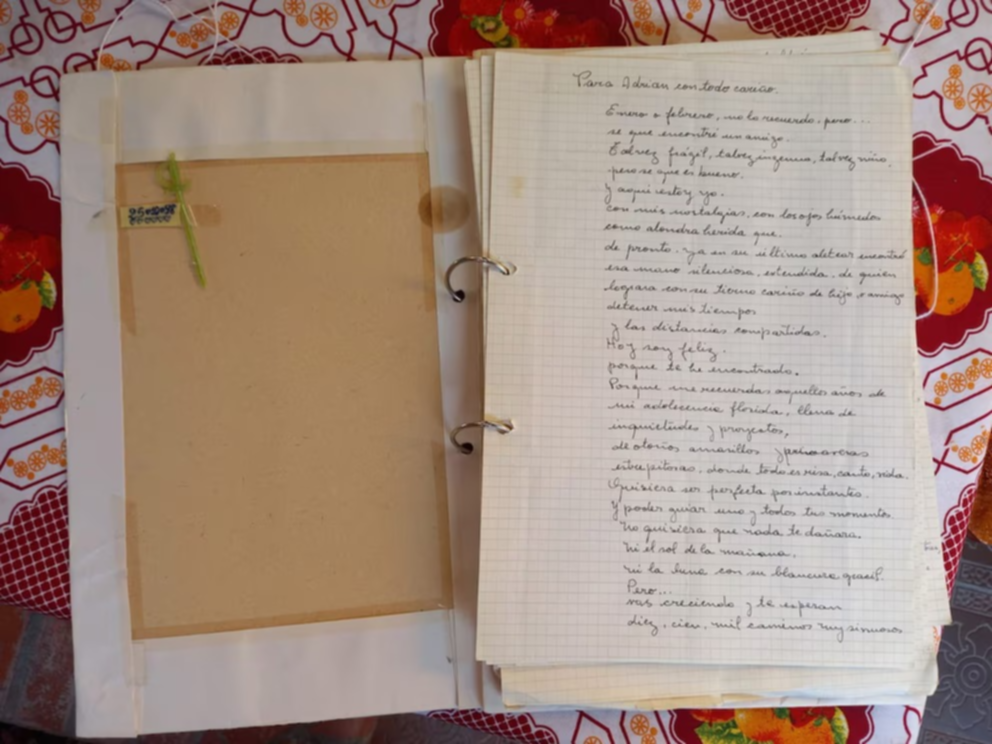 Para Adrian con todo cariño.
Enero o febrero, no lo recuerdo, pero...
se que encontré un amigo.
Talvez frágil, talvez ingenuo, talvez niño,
pero se que es bueno.
Y aqui estoy yo.
con mis nostalgias, con los ojos húmedos
como alondra herida que.
de pronto. ya en su último aletear encontró
esa mano silenciosa, extendida, de quien
lograra con su tierno cariño de hijo o amigo
detener mis tiempos
y las distancias compartidas.
Hoy soy feliz.
porque te he encontrado.
Porque me recuerdas aquellos años de
mi adolescencia florida, llena de
inquietudes y proyectos,
de otoños amarillos y primaveras
estrepitosas, donde todo es risa, canto, vida.
Quisiera ser perfecta por instantes.
Y poder guiar uno y todos tus momentos.
No quisiera que nada te dañara.
ni el sol de la mañana.
ni la luna con su blancura gracil.
Pero...
vas creciendo y te esperan
diez, cien, mil caminos muy sinuosos